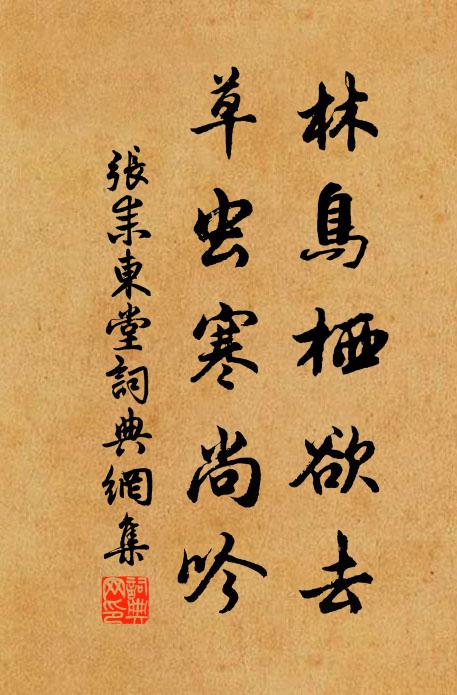 林鳥栖欲去
草虫寒尚吟
張耒東堂詞典網集
詞典网印